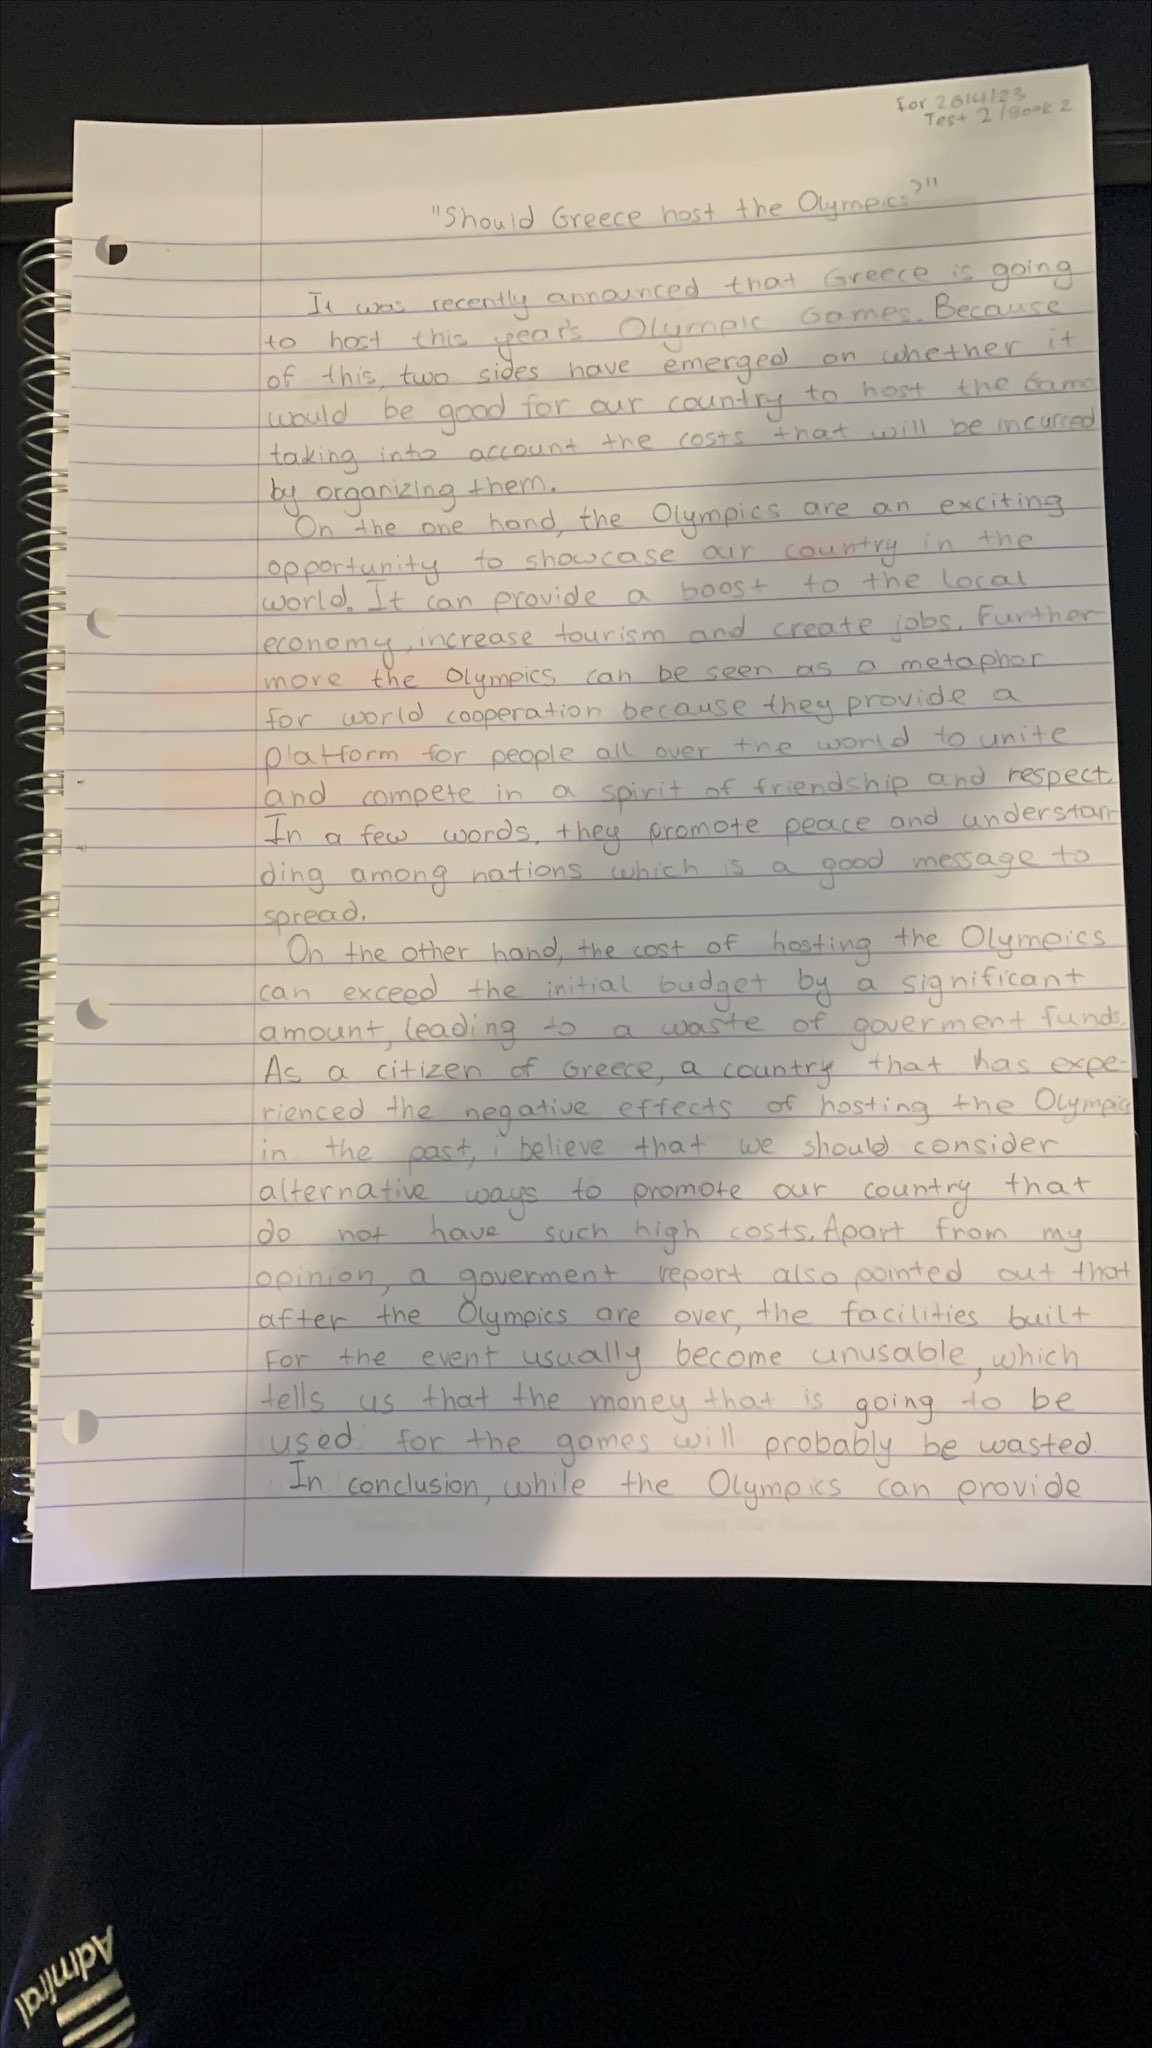 for 28/4/23
Test 2/Book 2
"Should Greece host the Olympics?"
It was recently announced that Greece is going
to host this year's Olympic Games. Because
of this, two sides have emerged on whether it
would be good for our country to host the Game
taking into account the costs that will be incurred
by organizing them.
On the one hand, the Olympics are an exciting
opportunity to showcase our country in the
world. It can provide a boost to the local
economy, increase tourism and create jobs. Further-
more the Olympics can be seen as a metaphor
for world cooperation because they provide a
platform for people all over the world to unite
and compete in a spirit of friendship and respect.
In a few words, they promote peace and understan-
ding among nations which is a good message to
spread.
On the other hand, the cost of hosting the Olympics
can exceed the initial budget by a significant
amount, leading to a waste of goverment funds.
As a citizen of Greece, a country that has expe-
rienced the negative effects of hosting the Olympics
in the past, i believe that we should consider
alternative ways to promote our country that
do not have such high costs. Apart from my
opinion, a goverment report also pointed out that
after the Olympics are over, the facilities built
for the event usually become unusable, which
tells us that the money that is going to be
used for the games will probably be wasted.
In conclusion, while the Olympics can provide
Admiral